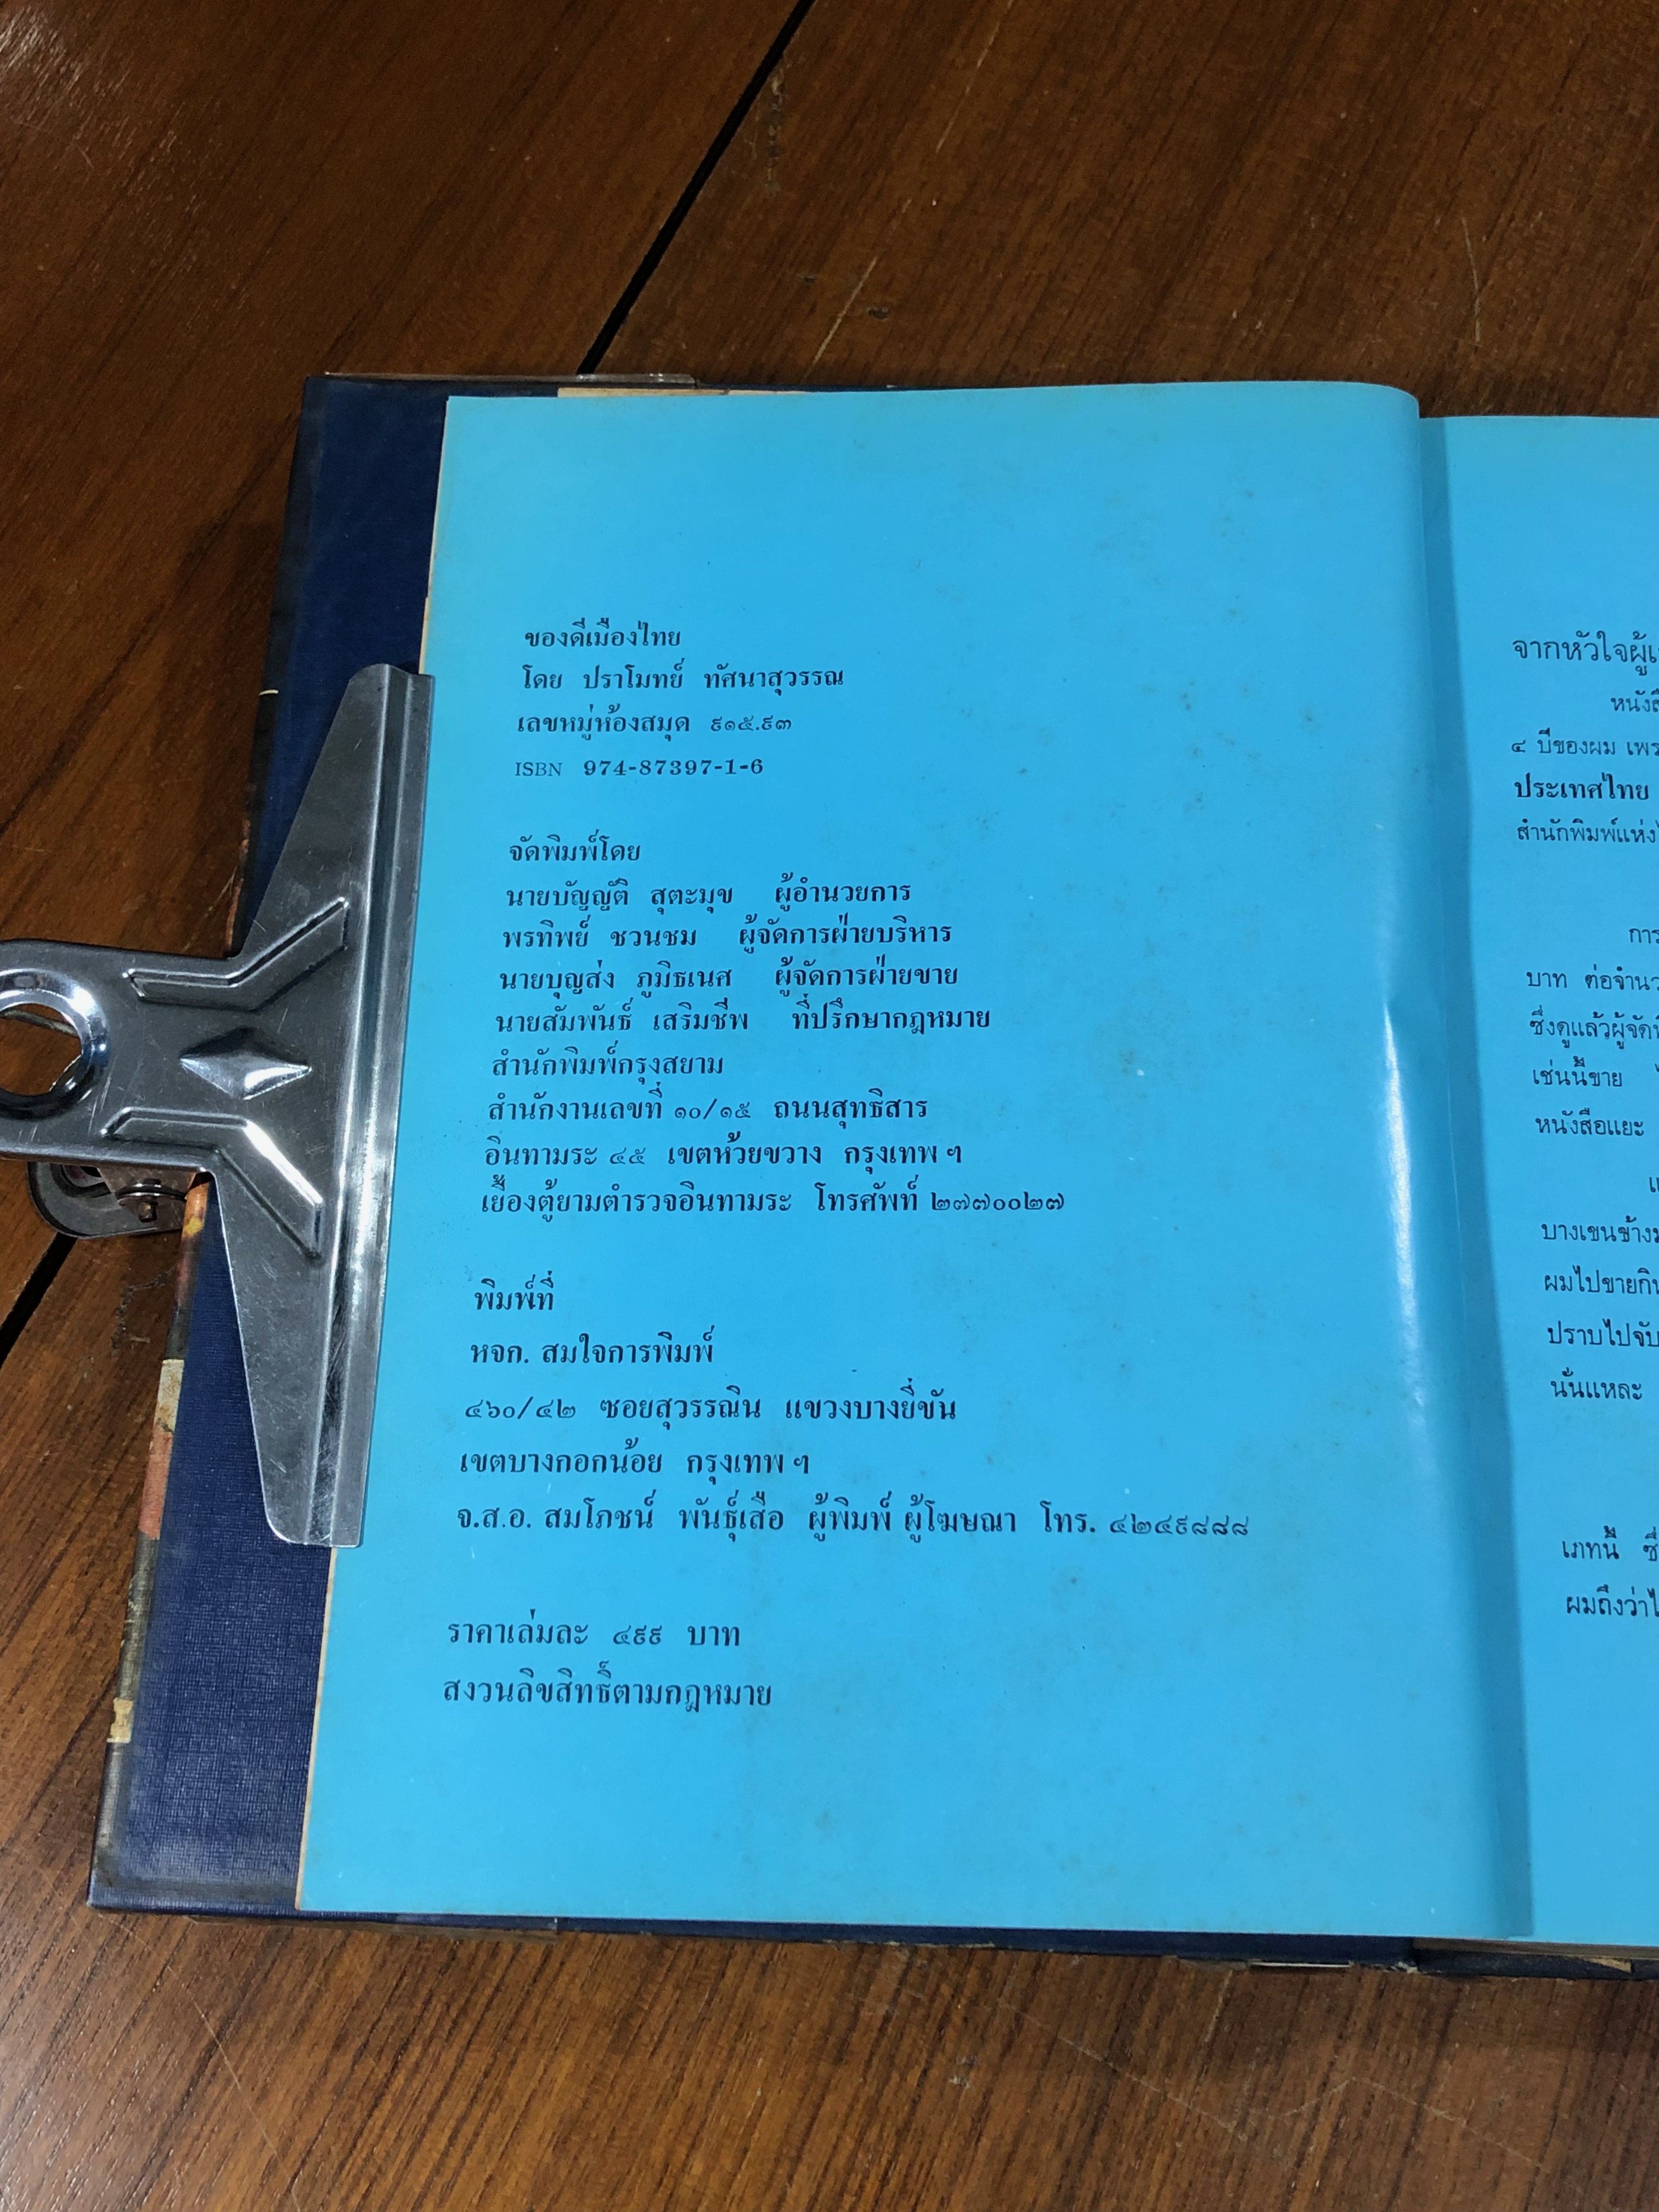 ของดีเมืองไทย
โดย ปราโมทย์ ทัศนาสุวรรณ
เลขหมู่ห้องสมุด ๙๑๕.๙๓
ISBN 974-87397-1-6
จัดพิมพ์โดย
นายบัญญัติ สุตะมุข ผู้อำนวยการ
พรทิพย์ ชวนชม ผู้จัดการฝ่ายบริหาร
นายบุญส่ง ภูมิธเนศ ผู้จัดการฝ่ายขาย
นายสัมพันธ์ เสริมชีพ ที่ปรึกษากฎหมาย
สำนักพิมพ์กรุงสยาม
สำนักงานเลขที่ ๑๐/๑๕ ถนนสุทธิสาร
อินทามระ ๔๕ เขตห้วยขวาง กรุงเทพ ฯ
เยื้องตู้ยามตำรวจอินทามระ โทรศัพท์ ๒๗๗๐๐๒๗
พิมพ์ที่
หจก. สมใจการพิมพ์
๔๖๐/๔๒ ซอยสุวรรณิน แขวงบางยี่ขัน
เขตบางกอกน้อย กรุงเทพ ฯ
จ.ส.อ. สมโภชน์ พันธุ์เสือ ผู้พิมพ์ ผู้โฆษณา โทร. ๔๒๔๙๘๘๘
ราคาเล่มละ ๔๙๙ บาท
สงวนลิขสิทธิ์ตามกฎหมาย
จากหัวใจผู้
๔ ปีของผม
ประเทศไทย
สำนักพิมพ์แห่ง
การ
บาท ต่อ
ซึ่งดูแล้วผู้จัด
เช่นนี้ขาย
หนังสือแยะ
บางเขนข้าง
ผมไปขาย
ปราบไปจับ
นั่นแหละ
เภทนี้
ผมถึงว่า